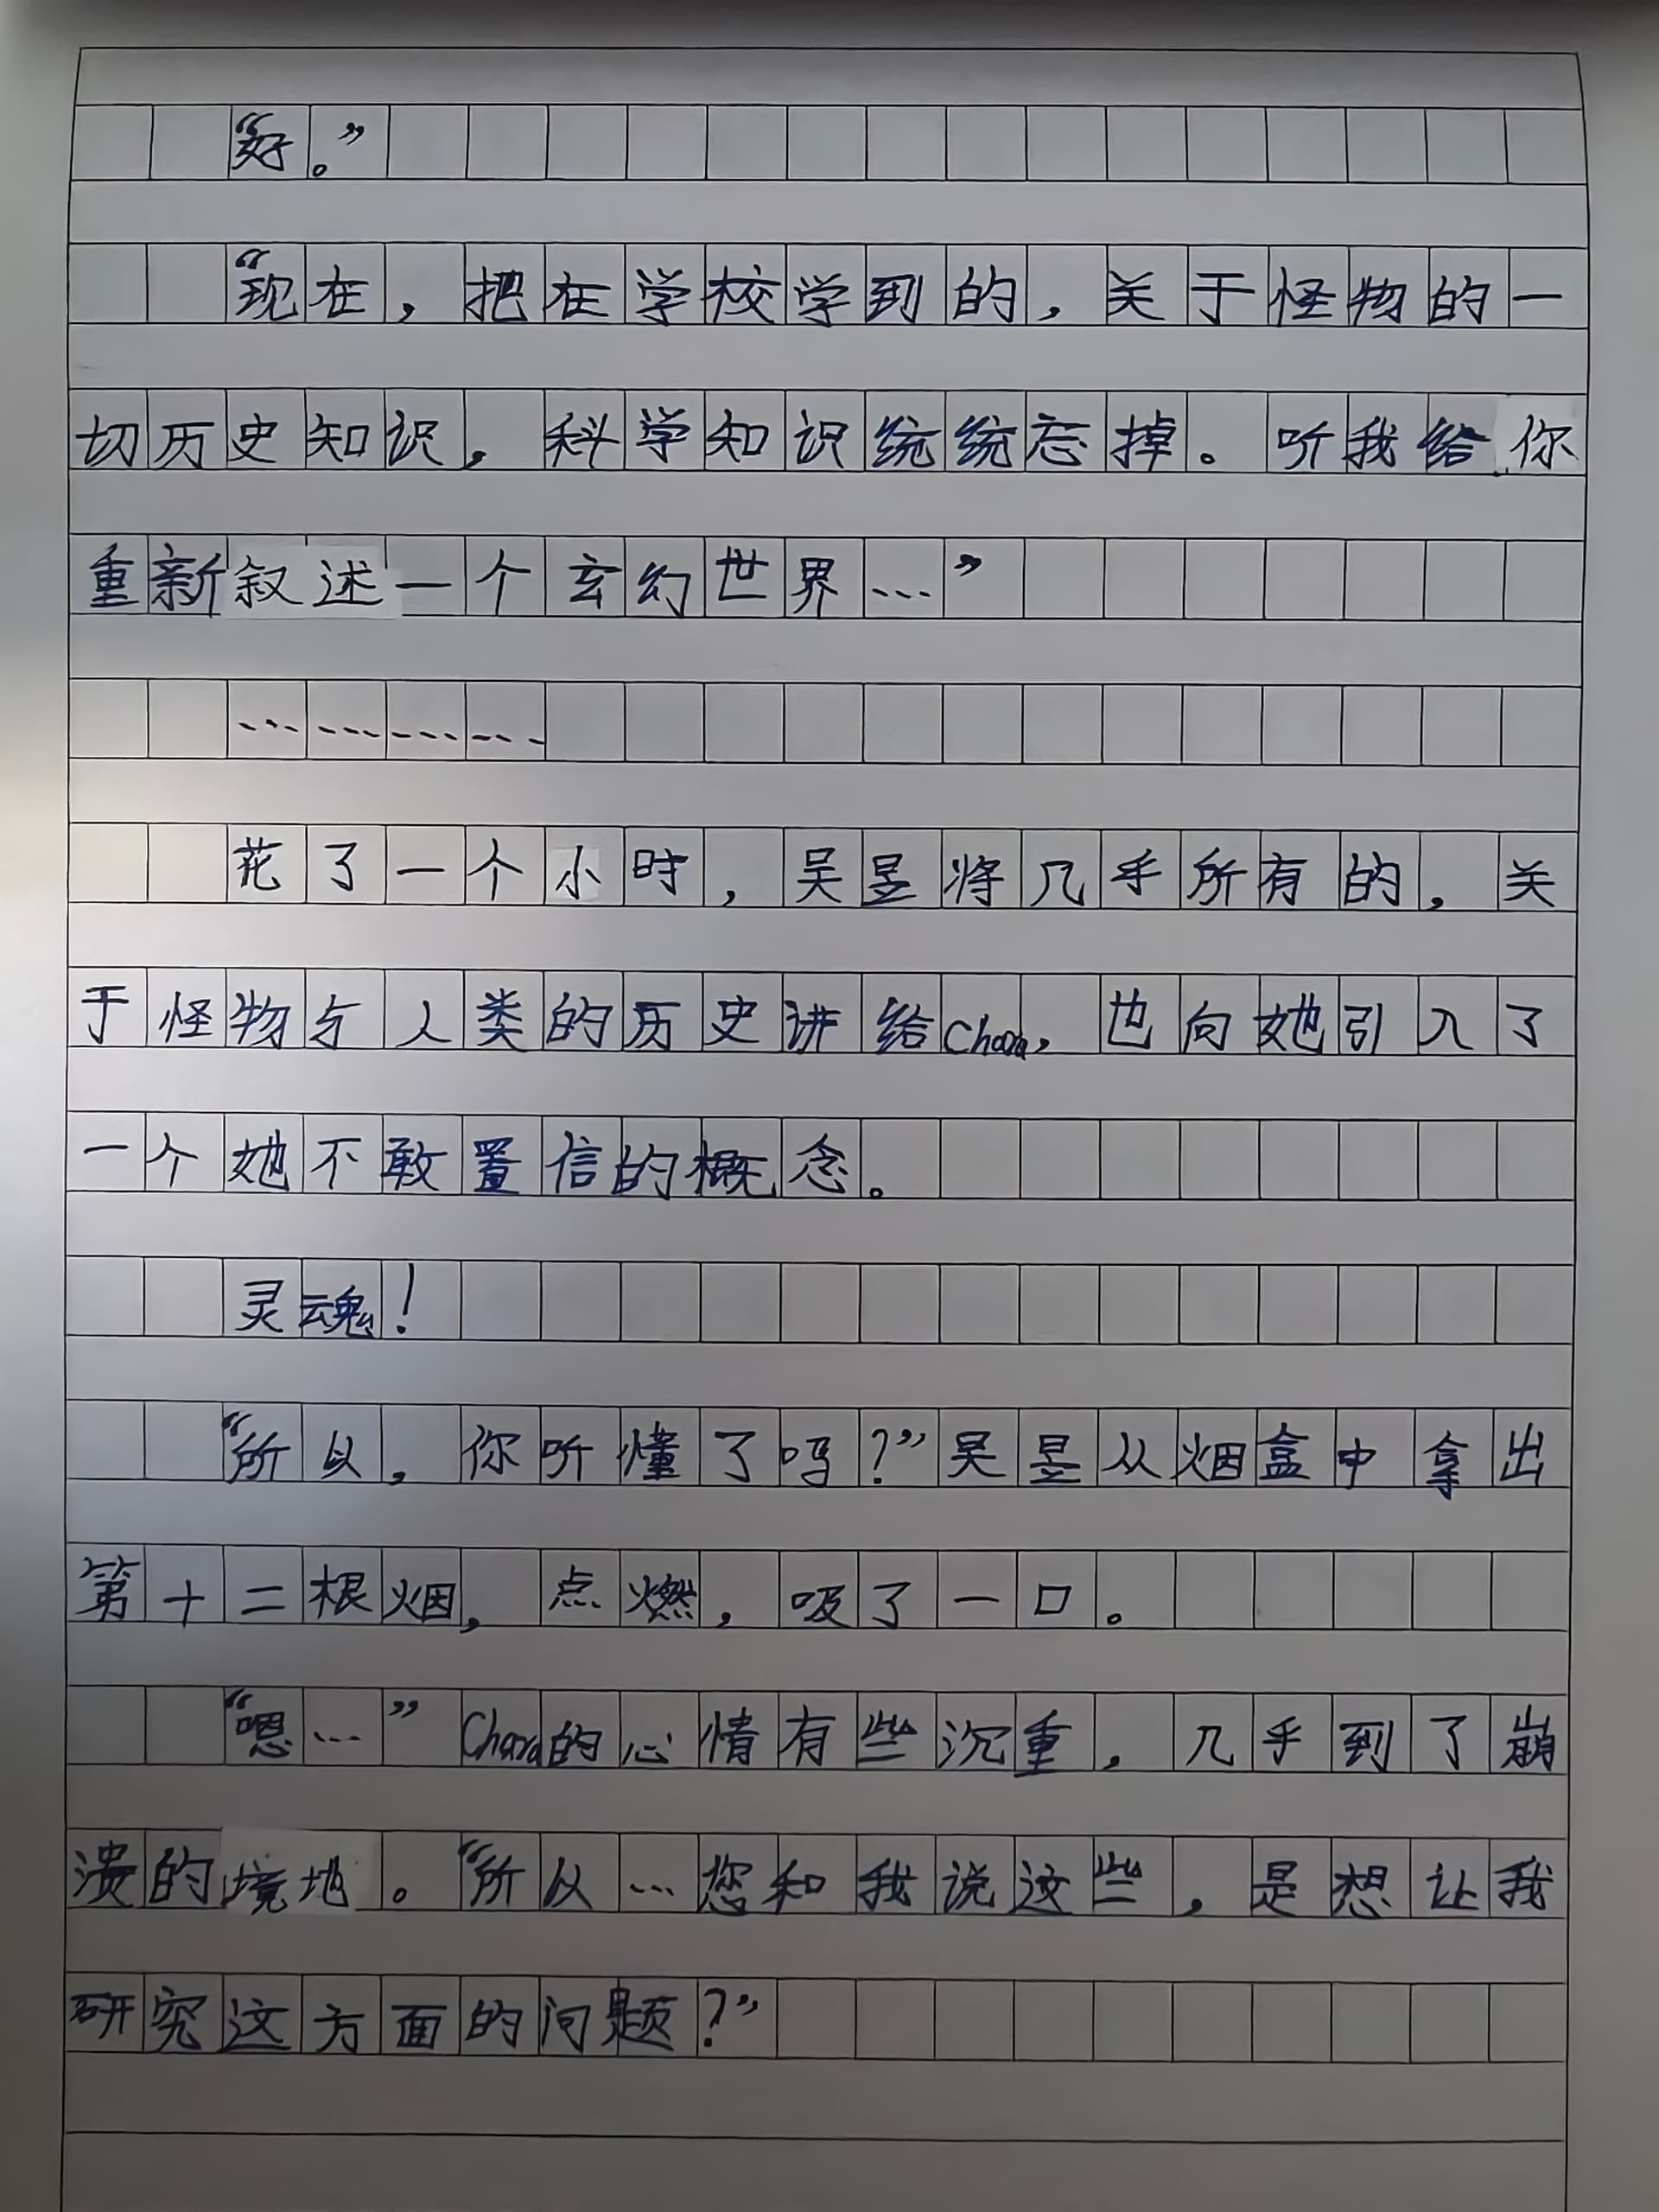 “好。”
“现在，把在学校学到的，关于怪物的一
切历史知识，科学知识统统忘掉。听我给你
重新叙述一个玄幻世界…”
…………
花了一个小时，吴昱将几乎所有的，关
于怪物与人类的历史讲给Chara，也向她引入了
一个她不敢置信的概念。
灵魂！
“所以，你听懂了吗？”吴昱从烟盒中拿出
第十二根烟，点燃，吸了一口。
“嗯…”Chara的心情有些沉重，几乎到了崩
溃的境地。“所以…您和我说这些，是想让我
研究这方面的问题？”